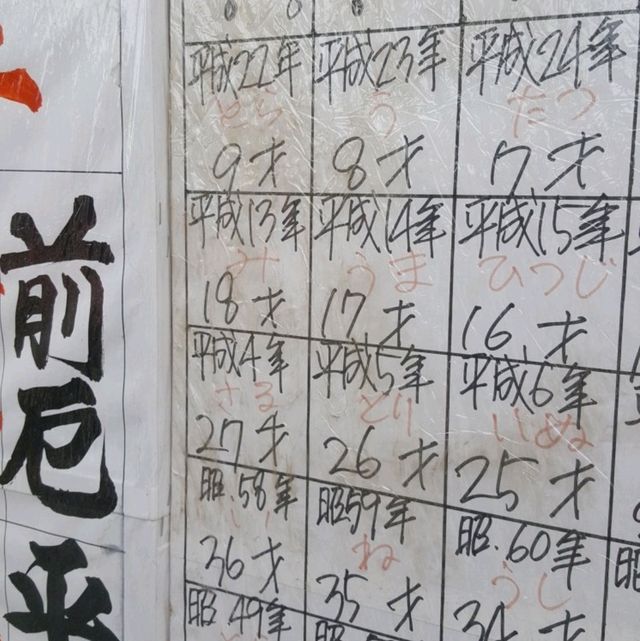 平成22年 平成23年 平成24年
とら う たつ
9才 8才 7才
平成13年 平成14年 平成15年
み うま ひつじ
18才 17才 16才
平成4年 平成5年 平成6年
さる とり いぬ
27才 26才 25才
昭.58年 昭59年 昭.60年
ね うし
36才 35才 34才
昭49年
前厄
平